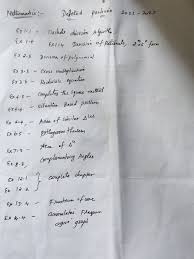 Mathematics:- Deleted portions 2021-2022
Ex 1.1 - Euclids division algorithm
Ex 1.4 Ex 1.4 Decimal of Rationals, 2^n 5^m form
Ex 2.3 - Division of polynomial
Ex 3.5 - Cross multiplication
Ex 3.6 - Reducible equation
Ex 4.3 - completes the square method
Ex - Situation Based problem
Ex 6.4 - Area of similar Δles
Ex 6.5 - Pythagoras theorem
Ex 7.3 - Area of Δ
Ex 8.3 - Complementary Angles
Ex 12.1
Ex 12.2 - Complete chapter
Ex 13.4 - Frustum of cone
Ex 14.4 - Cumulative Frequency
ogive graph